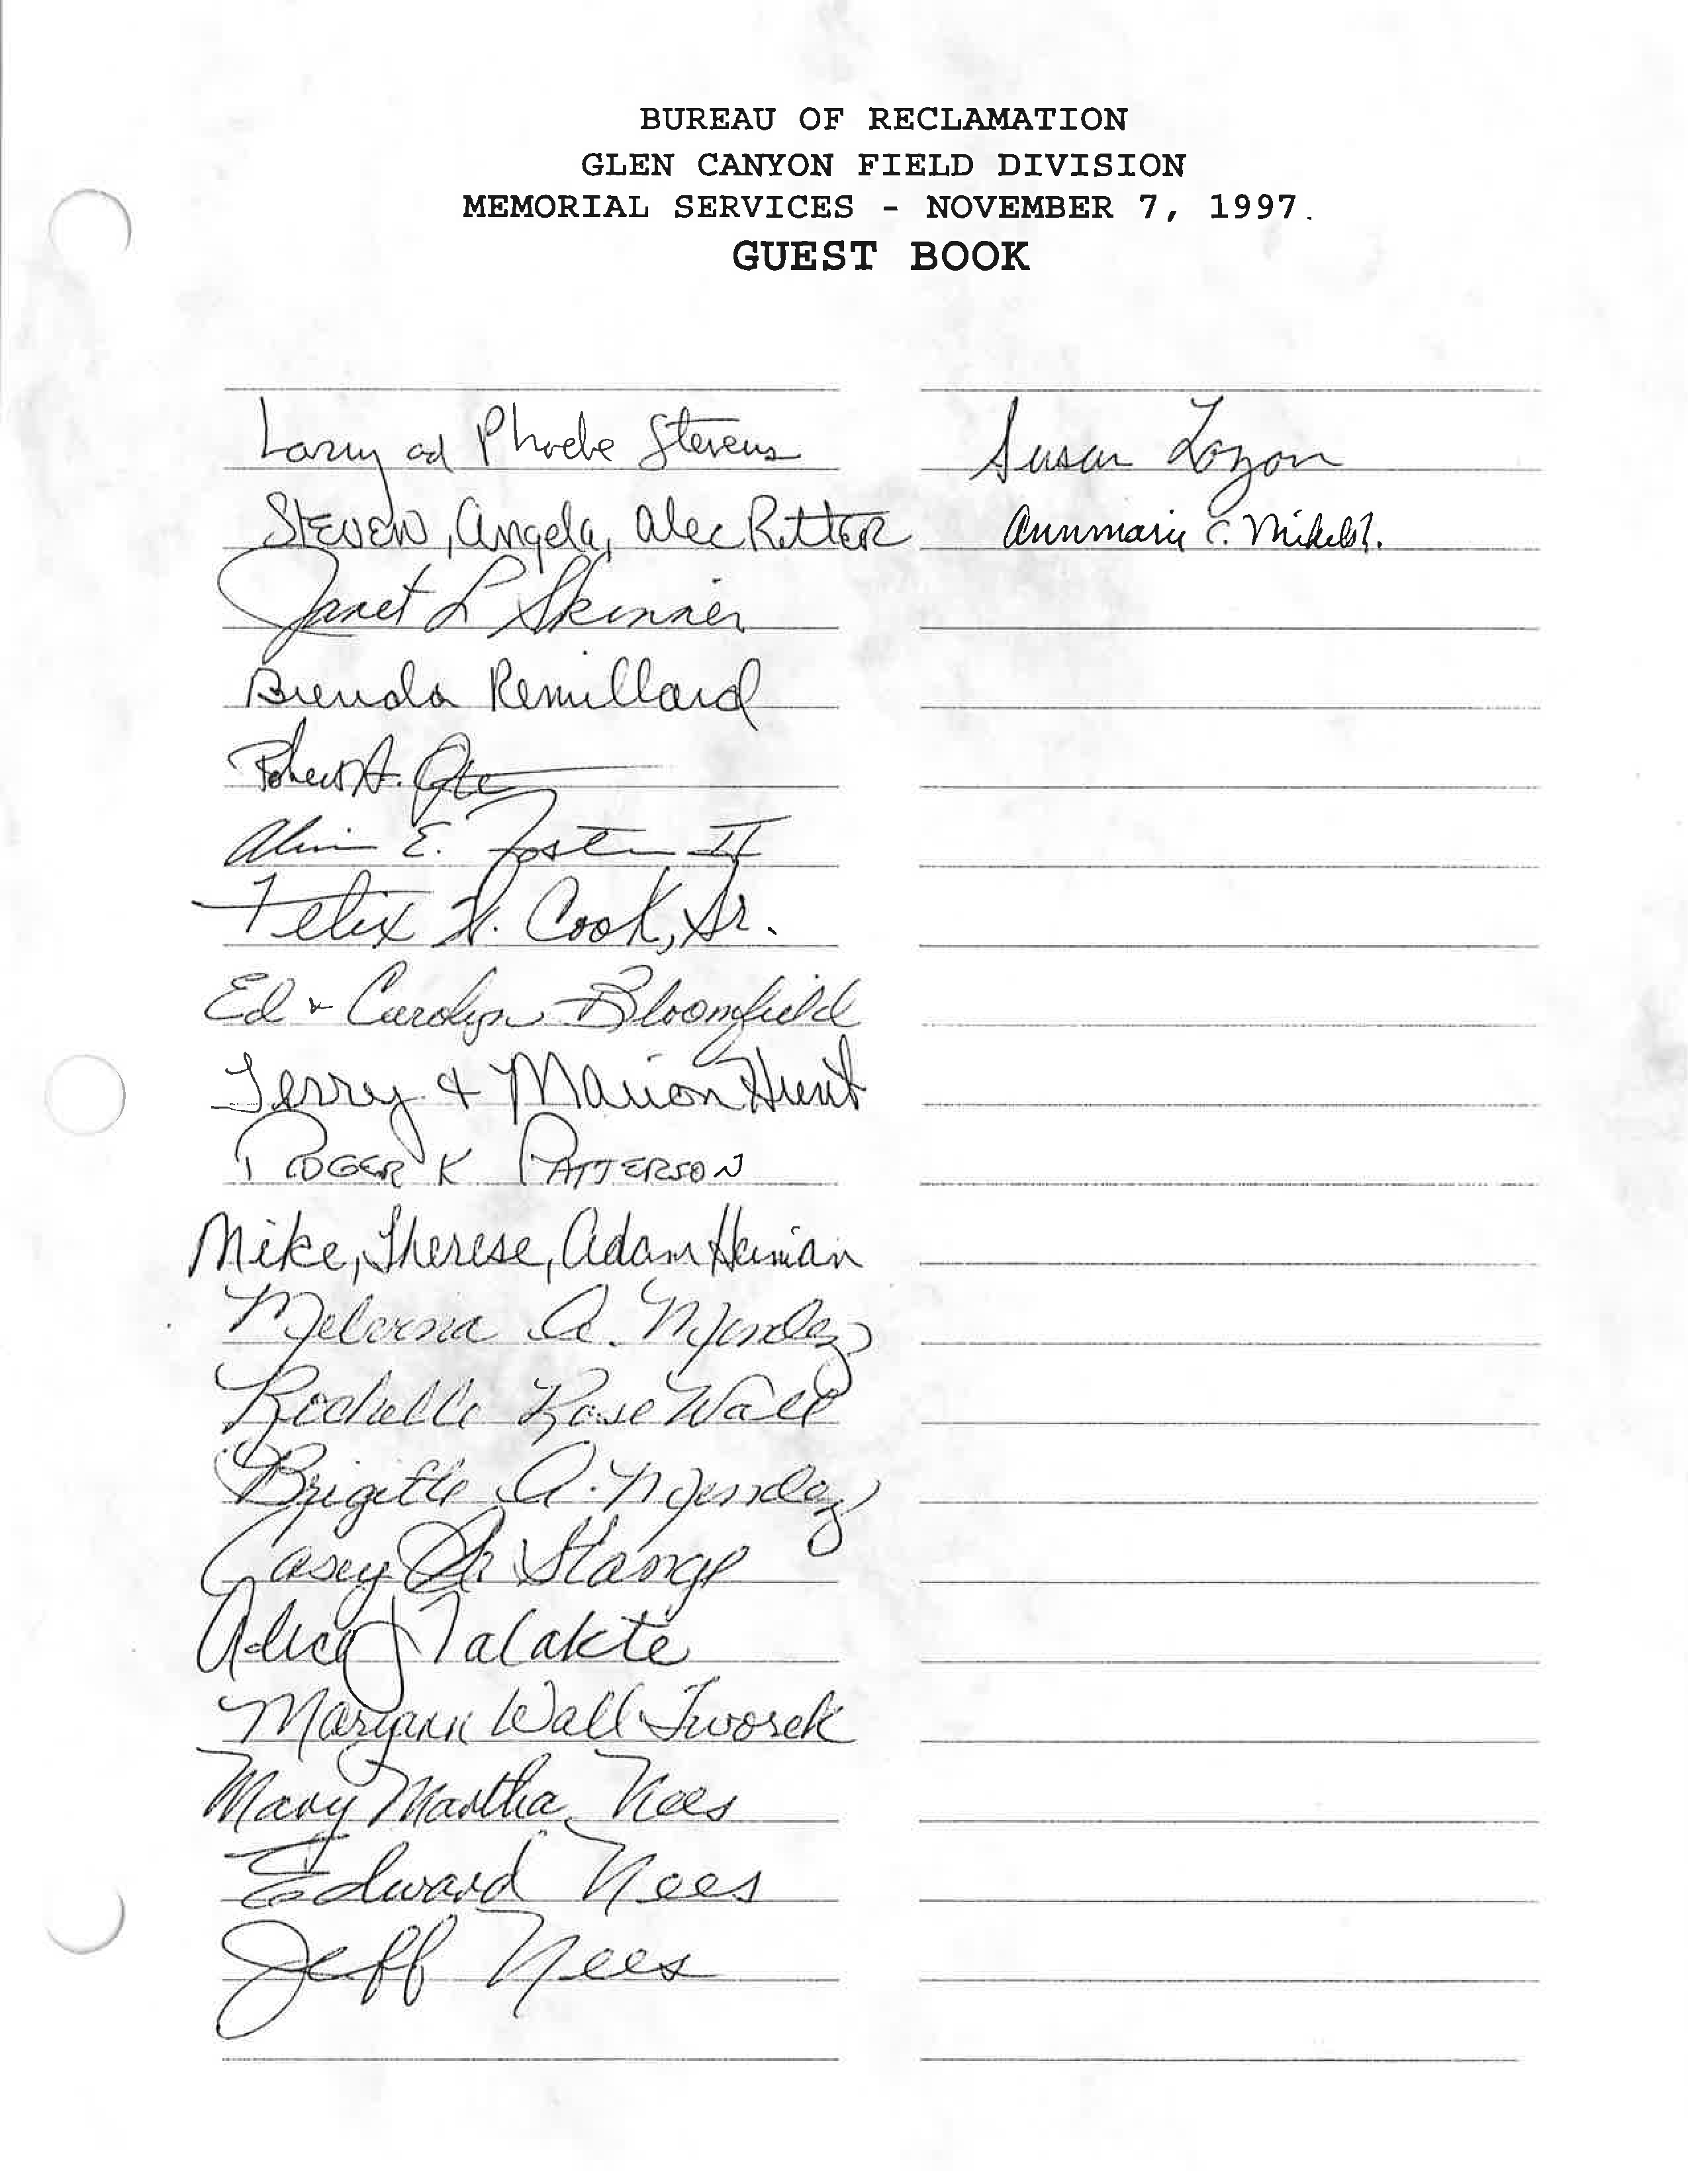 BUREAU OF RECLAMATION
GLEN CANYON FIELD DIVISION
MEMORIAL SERVICES - NOVEMBER 7, 1997.
GUEST BOOK
Larry ad Phoebe Stevens
Steven, Angela, Alec Ritter
Janet L Skinner
Brenda Remillard
Robert A.
E. Foster II
Felix W. Cook, Sr.
Ed + Carolyn Bloomfield
Terry & Marion Hunt
ROGER K PATTERSON
Mike, Therese, Adam Heiman
A. Mendez
Rochelle Rose Wall
Brigitte A. Mendez
Casey Stange
Alice Talakte
Maryann Wall Tworek
Mary Martha Nees
Edward Nees
Jeff Nees
Susan Lozon
Annmarie C.